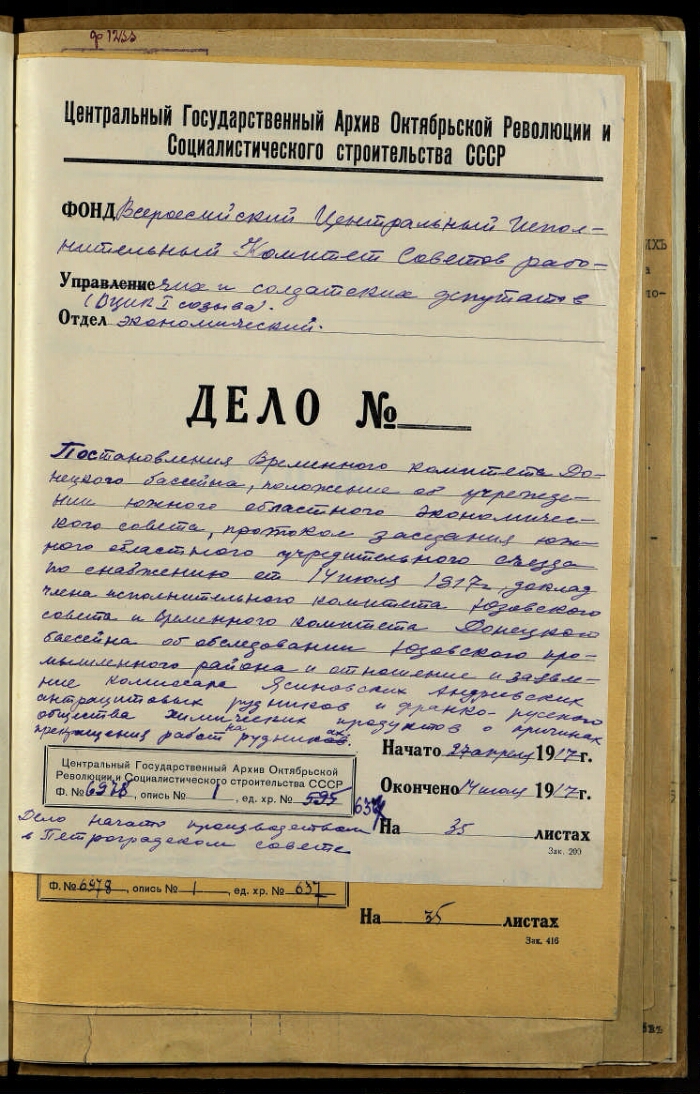 ф 1235
Центральный Государственный Архив Октябрьской Революции и
Социалистического строительства СССР
ФОНД Всероссийский Центральный Испол-
нительный Комитет Советов рабо-
Управление чих и солдатских депутатов
(ВЦИК I созыва).
Отдел экономический.
ДЕЛО №
Постановления Временного комитета До-
нецкого бассейна, положение об учрежде-
нии южного областного экономичес-
кого совета, протокол заседания юж-
ного областного учредительного съезда
по снабжению от 14 июля 1917г, доклад
члена исполнительного комитета Юзовского
совета и временного комитета Донецкого
бассейна об обследовании Юзовского про-
мышленного района и отношение и заявле-
ние комиссара Ясиновских Андреевских
антрацитовых рудников и франко-русского
общества химических продуктов о причинах
прекращения работ на рудниках.
Начато 27 апреля 1917 г.
Центральный Государственный Архив Октябрьской
Революции и Социалистического строительства СССР
Ф. № 6978, опись № 1, ед. хр. № 595 637
Окончено 14 июля 1917 г.
На 35 листах
Зак. 200
Дело начато производством
в Петроградском совете
Ф. № 6978, опись № 1, ед. хр. № 637
На 35 листах
Зак. 416
ихъ
а
по-
въ